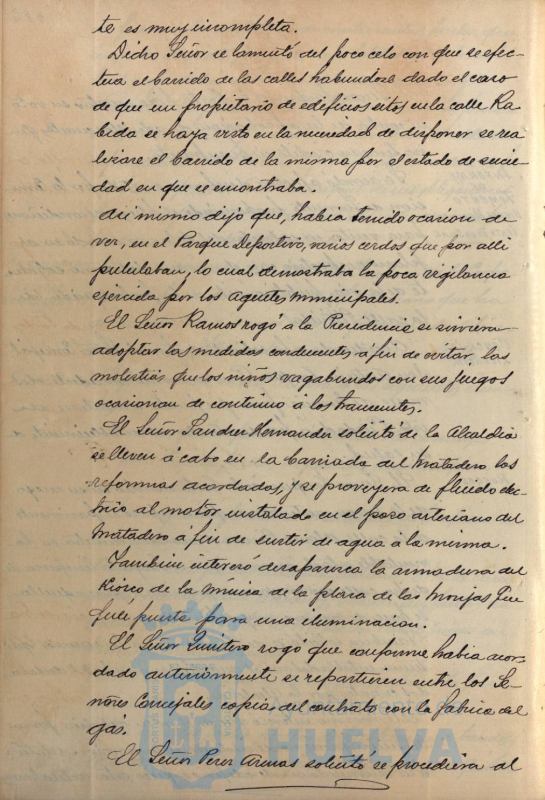 te es muy incompleta.
Dicho Señor se lamentó del poco celo con que se efec-
tua el barrido de las calles habiendose dado el caso
de que un propietario de edificios sitos en la calle Ra-
bida se haya visto en la necesidad de disponer se rea-
lizare el barrido de la misma por el estado de sucie-
dad en que se encontraba.
Asi mismo dijo que, habia tenido ocasion de
ver, en el Parque Deportivo, varios cerdos que por alli
pululaban, lo cual demostraba la poca vigilancia
ejercida por los agentes municipales.
El Señor Ramos rogó á la Presidencia se sirviera
adoptar las medidas conducentes á fin de evitar las
molestias que los niños vagabundos con sus juegos
ocasionan de continuo á los transeuntes.
El Señor Sanchez Hernandez solicitó de la Alcaldia
se lleven á cabo en la barriada del Matadero las
reformas acordadas, y se proveyera de fluido elec-
trico al motor instalado en el pozo artesiano del
Matadero á fin de surtir de agua á la misma.
Tambien interesó desaparezca la armadura del
Kiosco de la música de la plaza de las Monjas que
fué puesta para una iluminacion.
El Señor Quintero rogó que conforme habia acor-
dado anteriormente se repartieren entre los Se-
ñores Concejales copias del contrato con la fabrica del
gás.
El Señor Perez Armas solicitó se procediera al
HUELVA